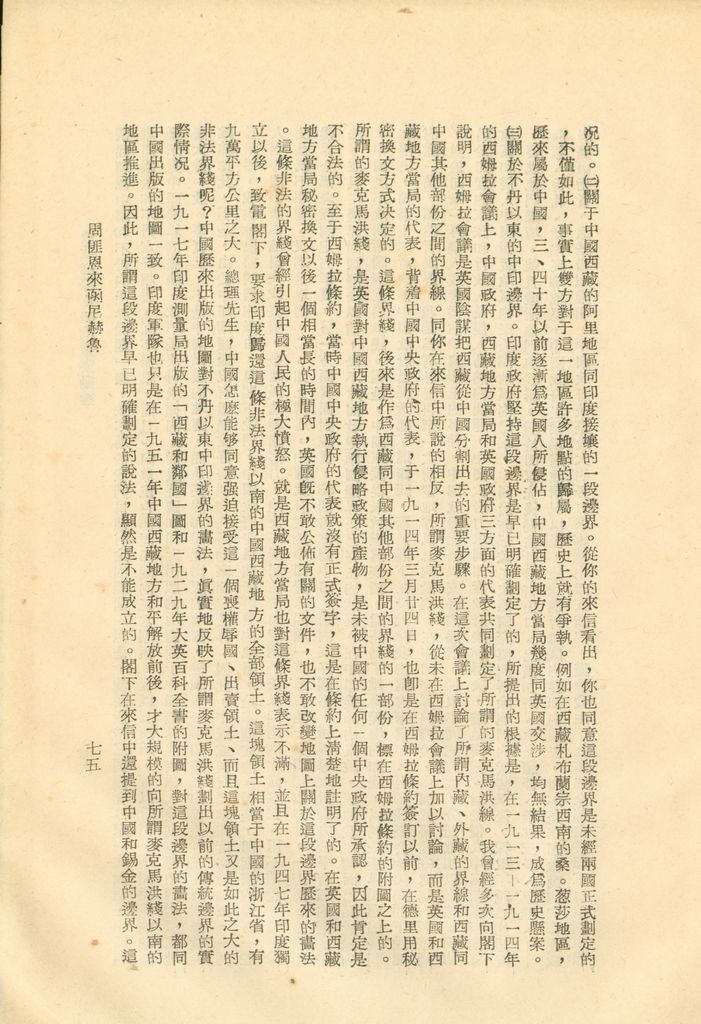 况的。㈡關于中國西藏的阿里地區同印度接壤的一段邊界。從你的來信看出，你也同意這段邊界是未經兩國正式劃定的
，不僅如此，事實上雙方對于這一地區許多地點的歸屬，歷史上就有爭執。例如在西藏札布蘭宗西南的桑。葱莎地區，
歷來屬於中國，三、四十年以前逐漸爲英國人所侵佔，中國西藏地方當局幾度同英國交涉，均無結果，成爲歷史懸案。
㈢關於不丹以東的中印邊界。印度政府堅持這段邊界是早已明確劃定了的，所提出的根據是，在一九一三－一九一四年
的西姆拉會議上，中國政府，西藏地方當局和英國政府三方面的代表共同劃定了所謂的麥克馬洪線。我曾經多次向閣下
說明，西姆拉會議是英國陰謀把西藏從中國分割出去的重要步驟。在這次會議上討論了所謂內藏、外藏的界線和西藏同
中國其他部份之間的界線。同你在來信中所說的相反，所謂麥克馬洪綫，從未在西姆拉會議上加以討論，而是英國和西
藏地方當局的代表，背着中國中央政府的代表，于一九一四年三月廿四日，也卽是在西姆拉條約簽訂以前，在德里用秘
密換文方式决定的。這條界綫，後來是作爲西藏同中國其他部份之間的界綫的一部份，標在西姆拉條約的附圖之上的。
所謂的麥克馬洪綫，是英國對中國西藏地方執行侵略政策的產物，是未被中國的任何一個中央政府所承認，因此肯定是
不合法的。至于西姆拉條約，當時中國中央政府的代表就沒有正式簽字，這是在條約上清楚地註明了的。在英國和西藏
地方當局秘密換文以後一個相當長的時間內，英國旣不敢公佈有關的文件，也不敢改變地圖上關於這段邊界歷來的畫法
。這條非法的界綫曾經引起中國人民的極大憤怒。就是西藏地方當局也對這條界綫表示不滿，並且在一九四七年印度獨
立以後，致電閣下，要求印度歸還這一條非法界綫以南的中國西藏地方的全部領土。這塊領土相當于中國的浙江省，有
九萬平方公里之大。總理先生，中國怎麼能够同意强迫接受這一個喪權辱國、出賣領土、而且這塊領土又是如此之大的
非法界綫呢？中國歷來出版的地圖對不丹以東中印邊界的畫法，眞實地反映了所謂麥克馬洪綫劃出以前的傳統邊界的實
際情况。一九一七年印度測量局出版的「西藏和鄰國」圖和一九二九年大英百科全書的附圖，對這段邊界的畫法，都同
中國出版的地圖一致。印度軍隊也只是在一九五一年中國西藏地方和平解放前後，才大規模的向所謂麥克馬洪綫以南的
地區推進。因此，所謂這段邊界早已明確劃定的說法，顯然是不能成立的。閣下在來信中還提到中國和錫金的邊界。這
周匪恩來函尼赫魯
七五